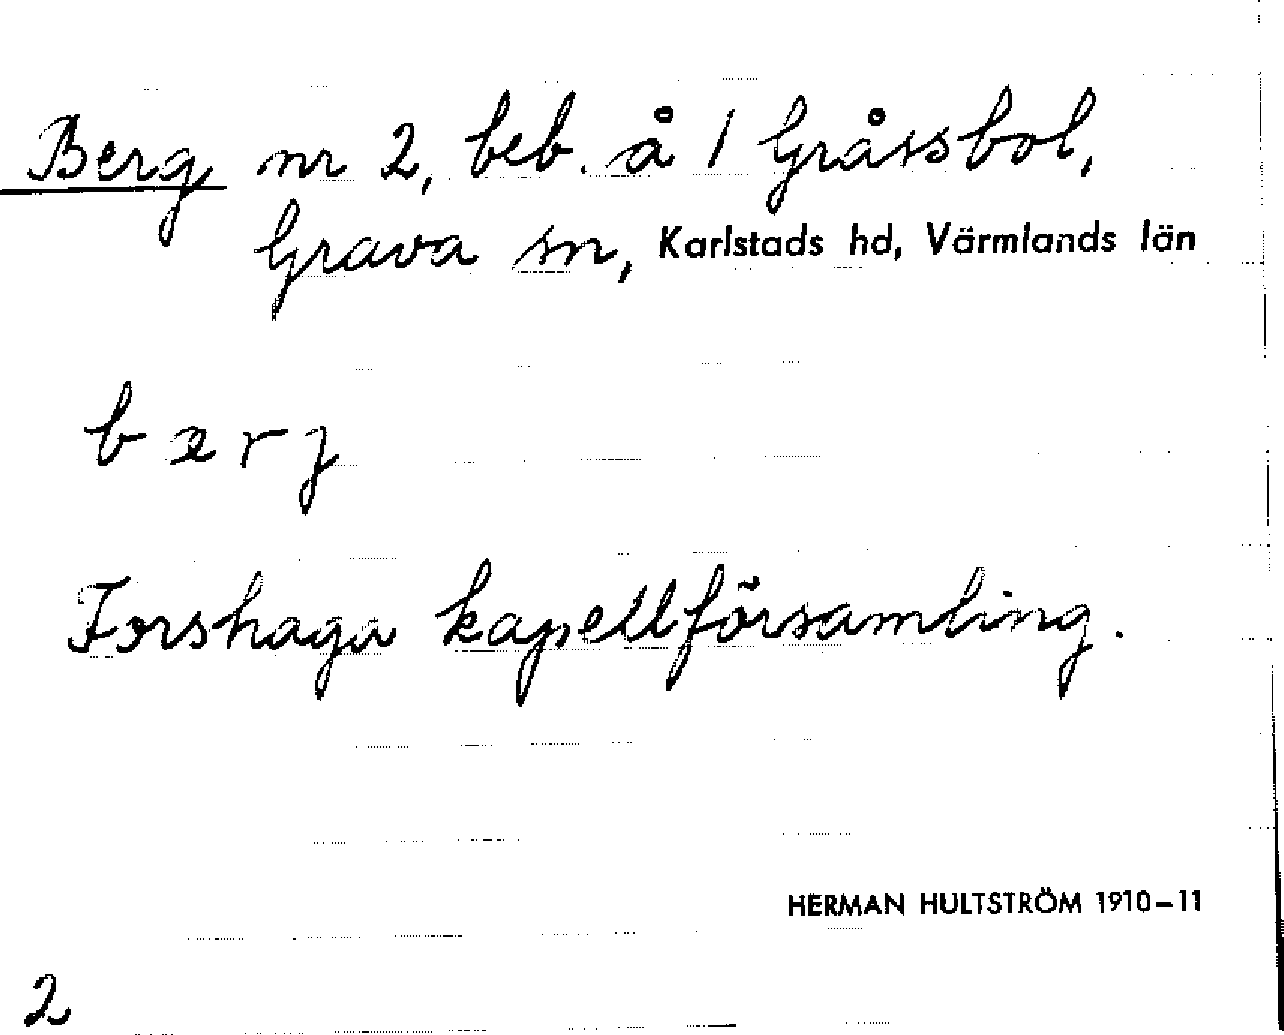 Berg nr 2, beb. å 1 Gråssbol,
Grava sn, Karlstads hd, Värmlands län
bærj
Forshaga kapellförsamling.
HERMAN HULTSTRÖM 1910–11
2